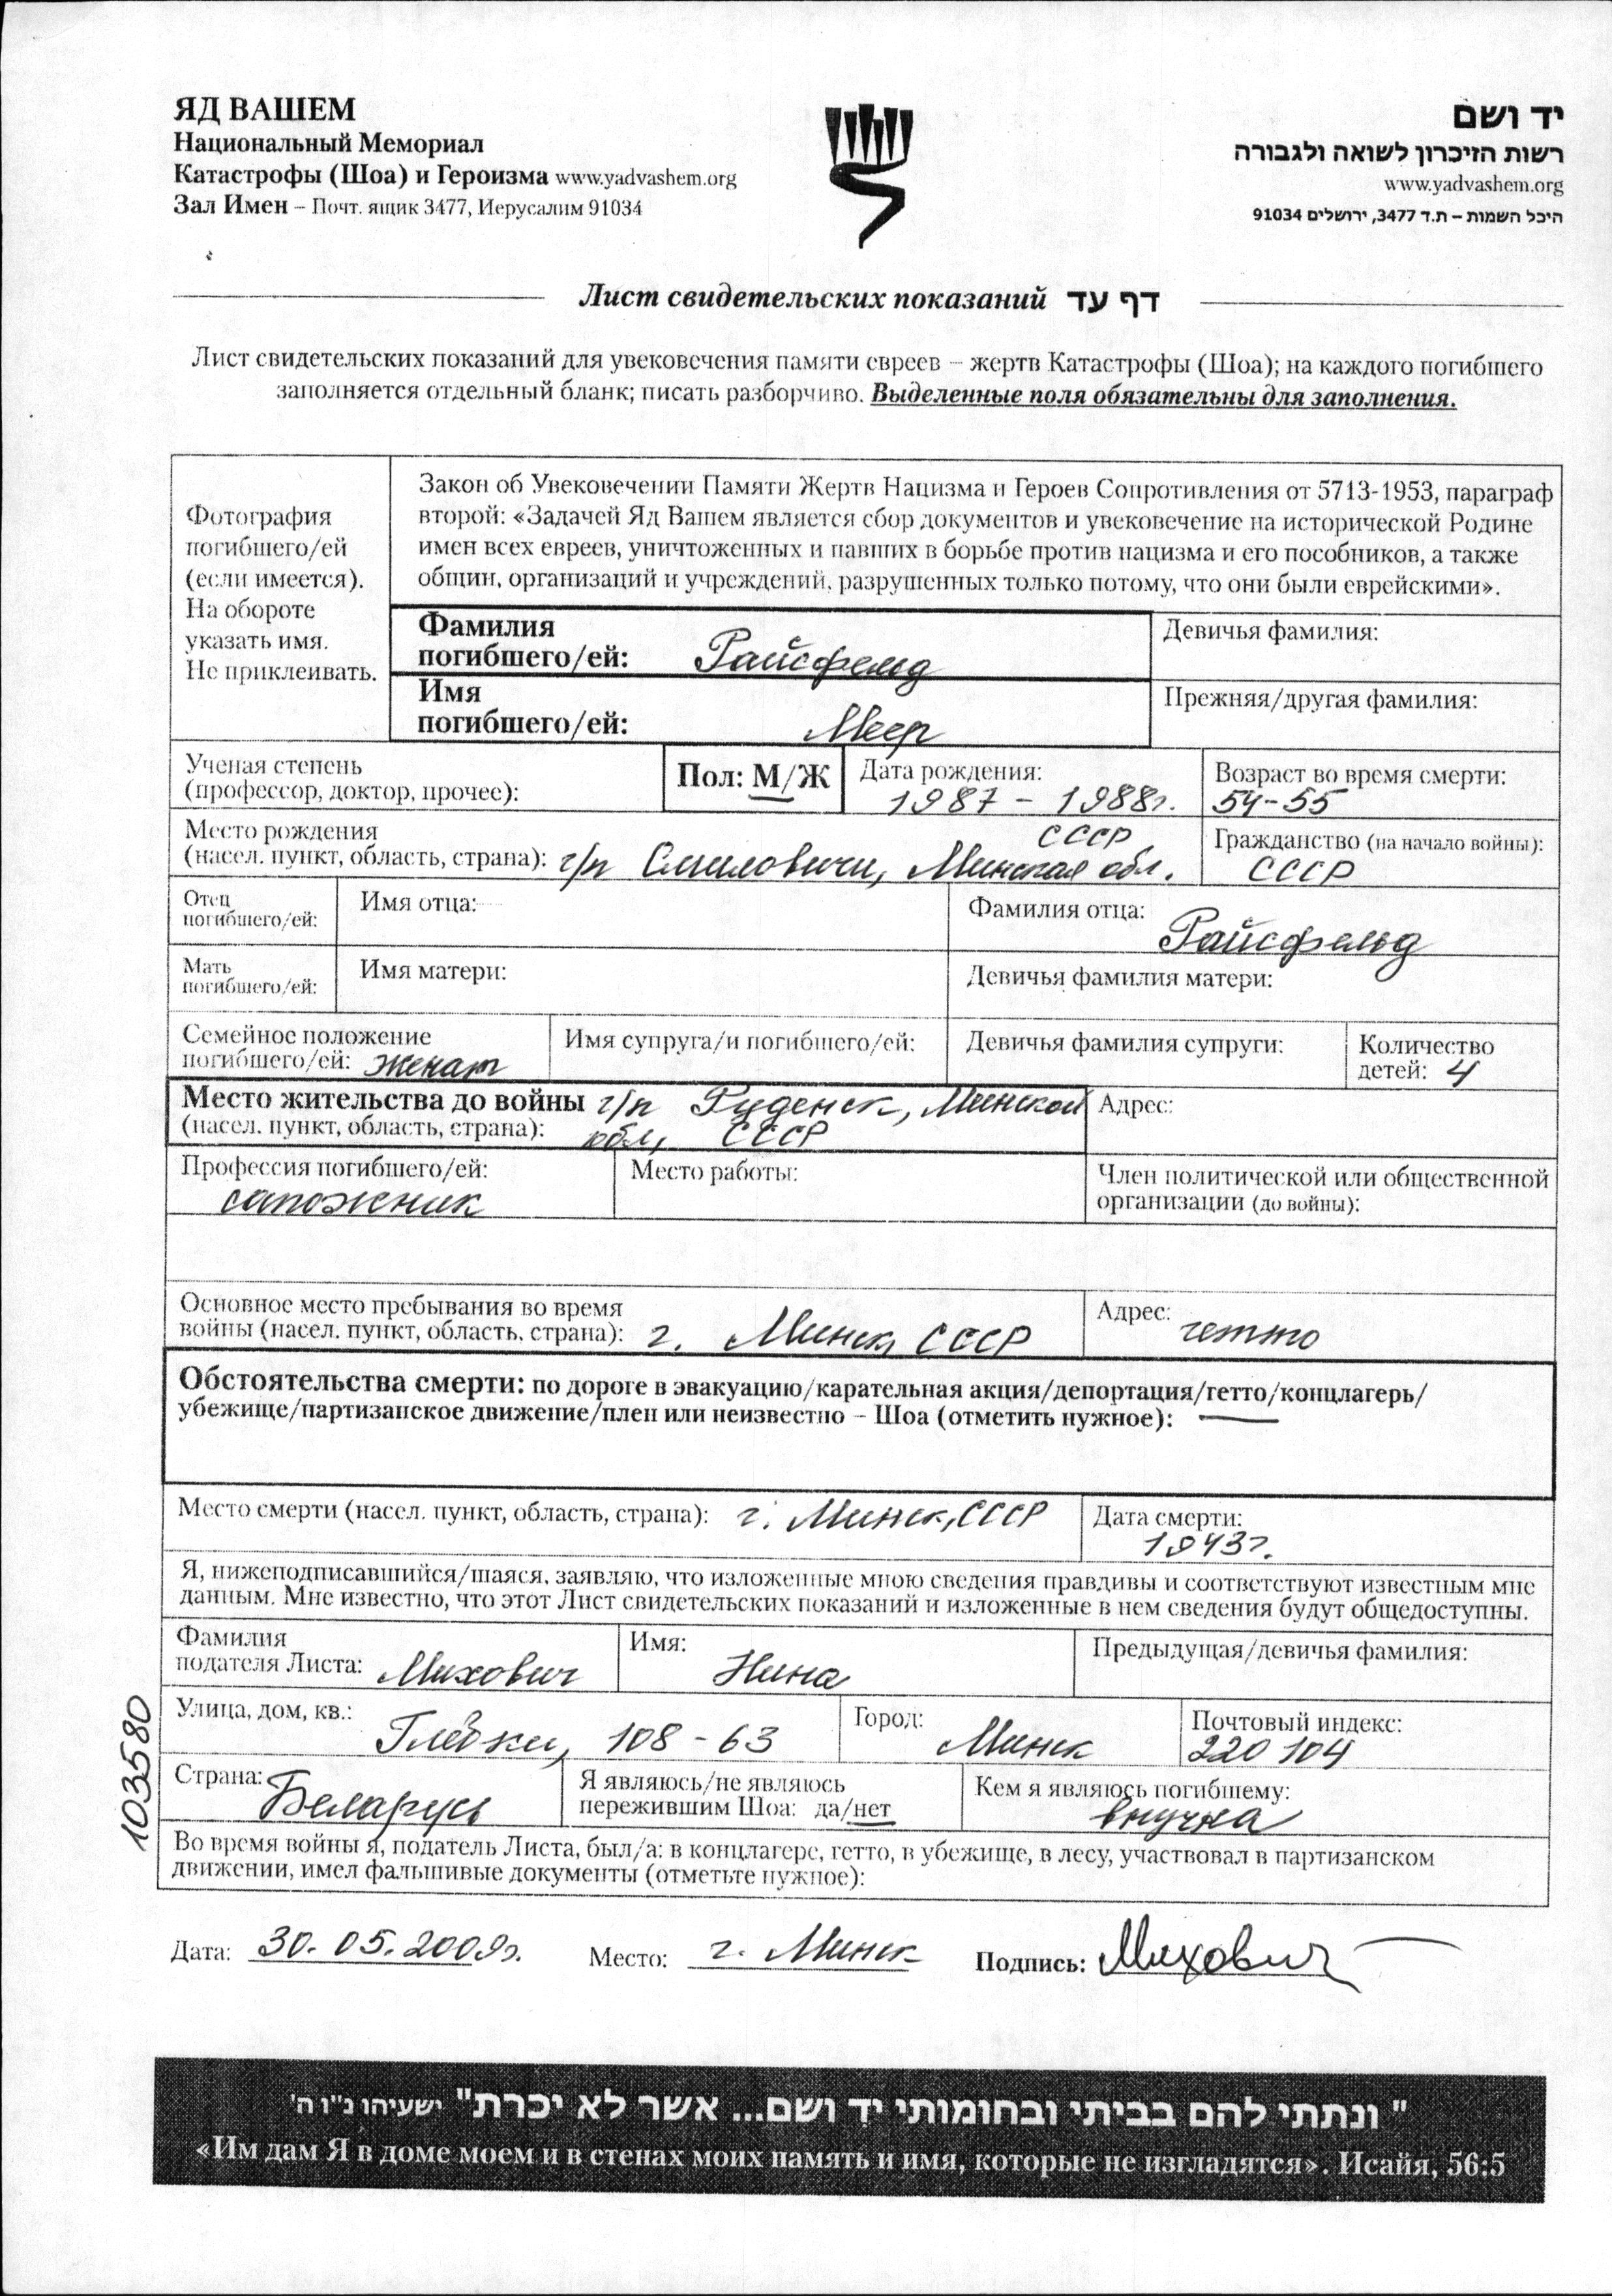 ЯД ВАШЕМ
Национальный Мемориал
Катастрофы (Шоа) и Героизма www.yadvashem.org
Зал Имен – Почт. ящик 3477, Иерусалим 91034
יד ושם
רשות הזיכרון לשואה ולגבורה
www.yadvashem.org
היכל השמות – ת.ד 3477, ירושלים 91034
Лист свидетельских показаний דף עד
Лист свидетельских показаний для увековечения памяти евреев – жертв Катастрофы (Шоа); на каждого погибшего
заполняется отдельный бланк; писать разборчиво. Выделенные поля обязательны для заполнения.
Фотография
погибшего/ей
(если имеется).
На обороте
указать имя.
Не приклеивать.
Закон об Увековечении Памяти Жертв Нацизма и Героев Сопротивления от 5713-1953, параграф
второй: «Задачей Яд Вашем является сбор документов и увековечение на исторической Родине
имен всех евреев, уничтоженных и павших в борьбе против нацизма и его пособников, а также
общин, организаций и учреждений, разрушенных только потому, что они были еврейскими».
Фамилия
погибшего/ей: Райсфельд
Девичья фамилия:
Имя
погибшего/ей: Меер
Прежняя/другая фамилия:
Ученая степень
(профессор, доктор, прочее):
Пол: М/Ж
Дата рождения:
1987 - 1988г.
Возраст во время смерти:
54-55
Место рождения
(насел. пункт, область, страна): г/п Смиловичи, Минская обл. СССР
Гражданство (на начало войны):
СССР
Отец
погибшего/ей:
Имя отца:
Фамилия отца:
Райсфельд
Мать
погибшего/ей:
Имя матери:
Девичья фамилия матери:
Семейное положение
погибшего/ей: женат
Имя супруга/и погибшего/ей:
Девичья фамилия супруги:
Количество
детей: 4
Место жительства до войны г/п Руденск, Минской
(насел. пункт, область, страна): обл, СССР
Адрес:
Профессия погибшего/ей:
сапожник
Место работы:
Член политической или общественной
организации (до войны):
Основное место пребывания во время
войны (насел. пункт, область, страна): г. Минск, СССР
Адрес:
гетто
Обстоятельства смерти: по дороге в эвакуацию/карательная акция/депортация/гетто/концлагерь/
убежище/партизанское движение/плен или неизвестно – Шоа (отметить нужное): —
Место смерти (насел. пункт, область, страна): г. Минск, СССР
Дата смерти:
1943г.
Я, нижеподписавшийся/шаяся, заявляю, что изложенные мною сведения правдивы и соответствуют известным мне
данным. Мне известно, что этот Лист свидетельских показаний и изложенные в нем сведения будут общедоступны.
Фамилия
подателя Листа: Михович
Имя:
Нина
Предыдущая/девичья фамилия:
Улица, дом, кв.:
Глебки, 108 - 63
Город:
Минск
Почтовый индекс:
220 104
Страна:
Беларусь
Я являюсь/не являюсь
пережившим Шоа: да/нет
Кем я являюсь погибшему:
внучка
Во время войны я, податель Листа, был/а: в концлагере, гетто, в убежище, в лесу, участвовал в партизанском
движении, имел фальшивые документы (отметьте нужное):
103580
Дата: 30.05.2009г. Место: г. Минск Подпись: Михович
" ונתתי להם בביתי ובחומותי יד ושם... אשר לא יכרת" ישעיהו נ"ו ה'
«Им дам Я в доме моем и в стенах моих память и имя, которые не изгладятся». Исайя, 56:5